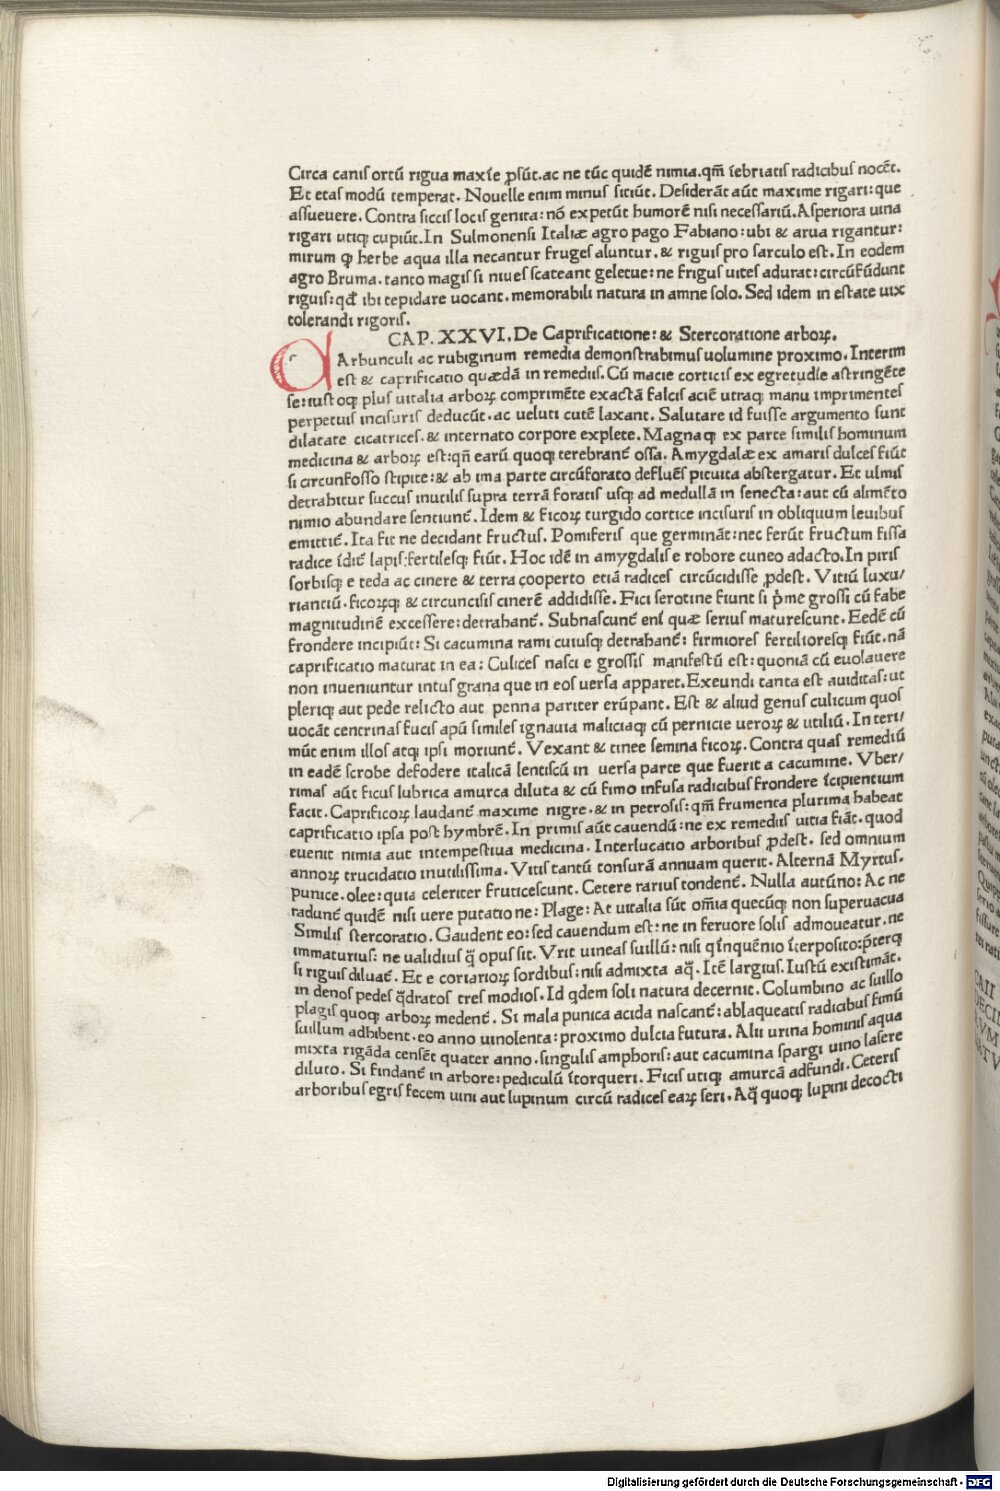 Circa canis ortū rigua maxīe ꝓsūt. ac ne tūc quidē nimia. qm̄ īebriatis radicibus nocēt.
Et etas modū temperat. Nouelle enim minus sitiūt. Desiderāt aūt maxime rigari: que
assueuere. Contra siccis locis genita: nō expetūt humorē nisi necessariū. Asperiora uina
rigari utiqꝫ cupiūt. In Sulmonensi Italiæ agro pago Fabiano: ubi & arua rigantur:
mirum ꝙ herbe aqua illa necantur fruges aluntur. & riguis pro sarculo est. In eodem
agro Bruma. tanto magis si niues scateant geletue: ne frigus uites adurat: circūfūdunt
riguis: qd̄ ibi tepidare uocant. memorabili natura in amne solo. Sed idem in estate uix
tolerandi rigoris.
CAP. XXVI. De Caprificatione: & Stercoratione arboꝝ.
C Arbunculi ac rubiginum remedia demonstrabimus uolumine proximo. Interim
est & caprificatio quædā in remediis. Cū macie corticis ex egretudīe astringēte
se: iusto qꝫ plus uitalia arboꝝ comprimēte exactā falcis aciē utraqꝫ manu imprimentes
perpetuis incisuris deducūt. ac ueluti cutē laxant. Salutare id fuisse argumento sunt
dilatate cicatrices. & internato corpore explete. Magnaqꝫ ex parte similis hominum
medicina & arboꝝ est: qn̄ earū quoqꝫ terebrant̄ ossa. Amygdalæ ex amaris dulces fiūt
si circunfosso stipite: & ab ima parte circūforato defluēs pituita abstergatur. Et ulmis
detrahitur succus inutilis supra terrā foratis usqꝫ ad medullā in senecta: aut cū alimēto
nimio abundare sentiunt̄. Idem & ficoꝝ turgido cortice incisuris in obliquum leuibus
emittit̄. Ita fit ne decidant fructus. Pomiferis que germināt: nec ferūt fructum fissa
radice īdit̄ lapis: fertilesqꝫ fiūt. Hoc idē in amygdalis e robore cuneo adacto. In piris
sorbisqꝫ e teda ac cinere & terra cooperto etiā radices circūcidisse ꝓdest. Vitiū luxu/
riantiū. ficoꝝqꝫ & circuncisis cinerē addidisse. Fici serotine fiunt si p̄me grossi cū fabe
magnitudinē excessere: detrahant̄. Subnascunt̄ eni quæ serius maturescunt. Eedē cū
frondere incipiūt: Si cacumina rami cuiusqꝫ detrahant̄: firmiores fertilioresqꝫ fiūt. nā
caprificatio maturat in ea: Culices nasci e grossis manifestū est: quoniā cū euolauere
non inueniuntur intus grana que in eos uersa apparet. Exeundi tanta est auiditas: ut
pleriqꝫ aut pede relicto aut penna pariter erūpant. Est & aliud genus culicum quos
uocāt centrinas fucis apū similes ignauia maliciaqꝫ cū pernicie ueroꝝ & utiliū. In teri/
mūt enim illos atqꝫ ipsi moriunt̄. Vexant & tinee semina ficoꝝ. Contra quas remediū
in eadē scrobe defodere italicā lentiscū in uersa parte que fuerit a cacumine. Vber/
rimas aūt ficus lubrica amurca diluta & cū fimo infusa radicibus frondere īcipientium
facit. Caprificoꝝ laudant̄ maxime nigre. & in petrosis: qm̄ frumenta plurima habeat
caprificatio ipsa post hymbrē. In primis aūt cauendū: ne ex remediis uitia fiāt. quod
euenit nimia aut intempestiua medicina. Interlucatio arboribus ꝓdest. sed omnium
annoꝝ trucidatio inutilissima. Vitis tantū tonsurā annuam querit. Alternā Myrtus.
punice. olee: quia celeriter fruticescunt. Cetere rarius tondent̄. Nulla autūno: Ac ne
radunt̄ quidē nisi uere putatione: Plage: At uitalia sūt oīa quecūqꝫ non superuacua
Similis stercoratio. Gaudent eo: sed cauendum est: ne in feruore solis admoueatur. ne
immaturius: ne ualidius q̄ opus sit. Vrit uineas suillū: nisi qīnquēnio īterposito: p̄terqꝫ
si riguis diluat̄. Et e coriarioꝝ sordibus: nisi admixta aq̄. Itē largius. Iustū existimāt.
in denos pedes q̄dratos tres modios. Id qdem soli natura decernit. Columbino ac suillo
plagis quoqꝫ arboꝝ medent̄. Si mala punica acida nascant̄: ablaqueatis radicibus fimū
suillum adhibent. eo anno uinolenta: proximo dulcia futura. Alii urina hominis aqua
mixta rigāda censēt quater anno. singulis amphoris: aut cacumina spargi uino lasere
diluto. Si findant̄ in arbore: pediculū ītorqueri. Ficis utiqꝫ amurcā adfundi. Ceteris
arboribus egris fecem uini aut lupinum circū radices eaꝝ seri. Aq̄ quoqꝫ lupini decocti
Digitalisierung gefördert durch die Deutsche Forschungsgemeinschaft - DFG